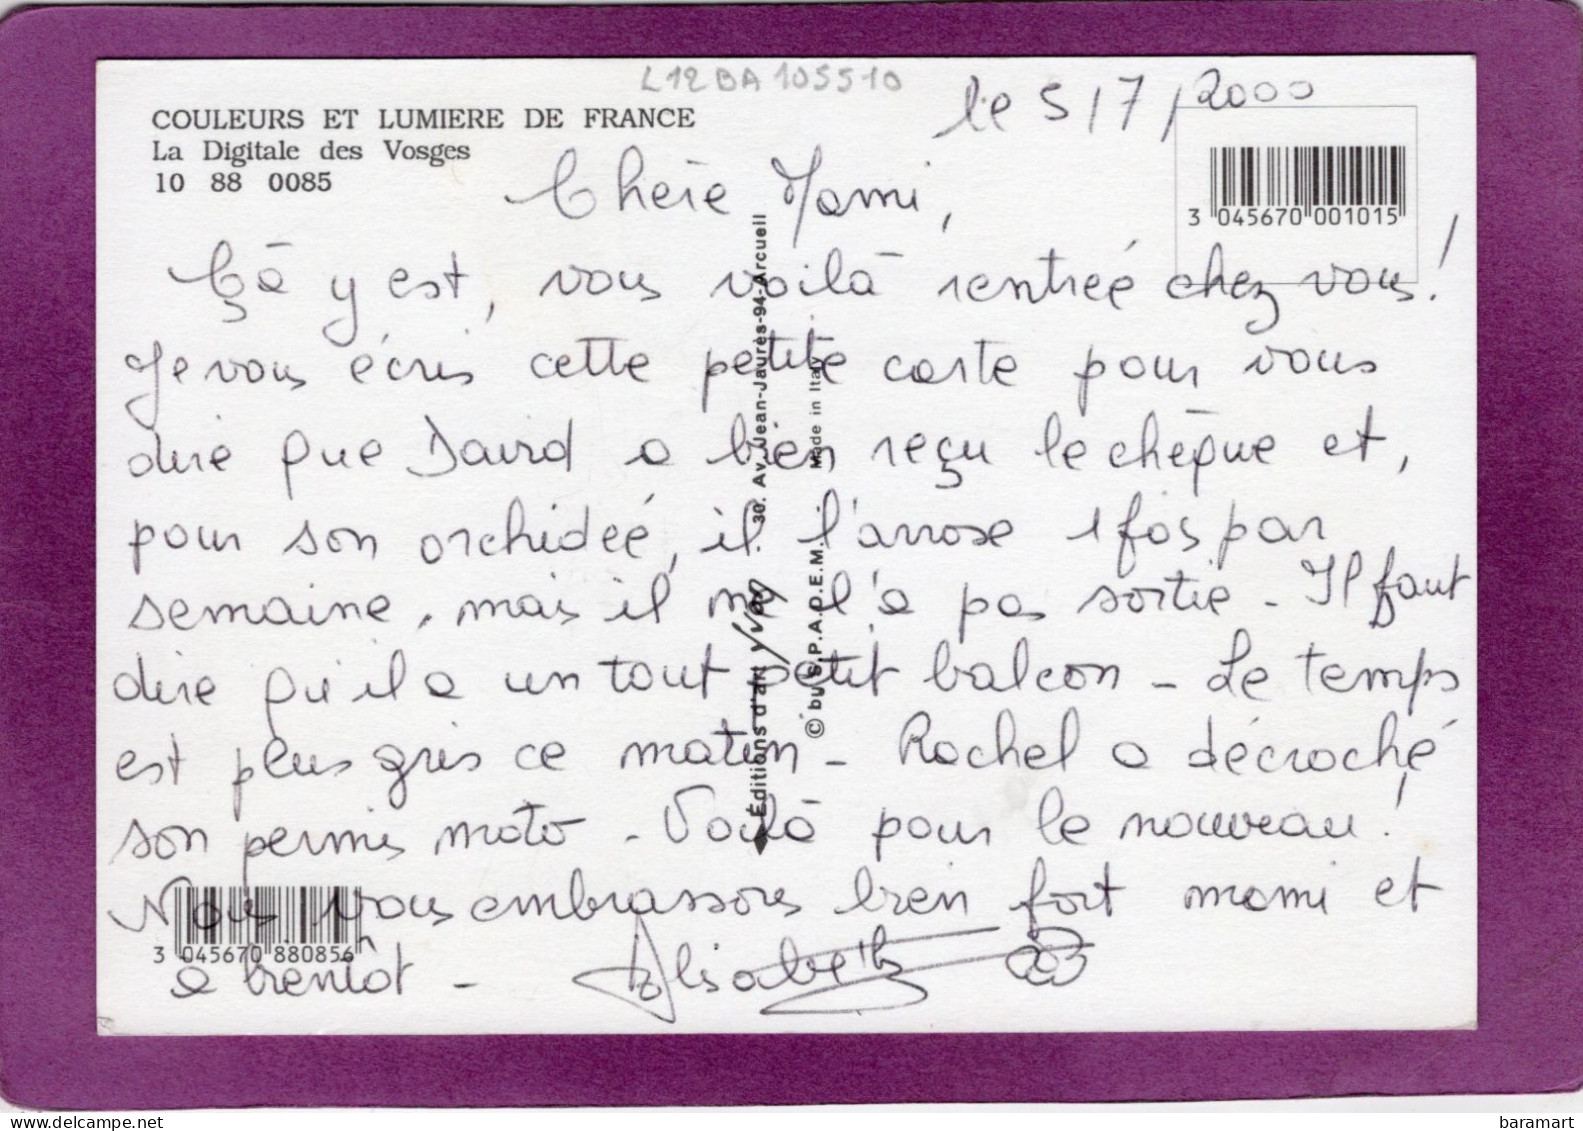 L12BA105510
le 5/7/2000
COULEURS ET LUMIERE DE FRANCE
La Digitale des Vosges
10 88 0085
3 045670 001015
Chère Mami,
Çà y est, vous voilà rentrée chez vous !
Je vous écris cette petite carte pour vous
dire que David a bien reçu le chèque et,
pour son orchidée, il l'arrose 1 fois par
semaine, mais il ne l'a pas sortie - Il faut
dire qu'il a un tout petit balcon - Le temps
est plus gris ce matin - Rachel a décroché
son permis moto - Voilà pour le nouveau !
Nous vous embrassons bien fort mami et
à bientôt - Elisabeth
3 045670 880856
Éditions d'art Yvon 30. Av. Jean-Jaurès-94-Arcueil
© by S.P.A.D.E.M. Made in Italy
delcampe.net
baramart